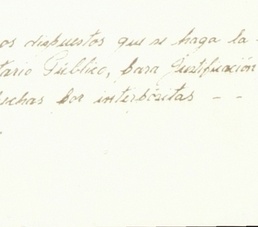 os dispuestos que se haga la -
tario Público, para Justificación
luchas por interpósitas - -